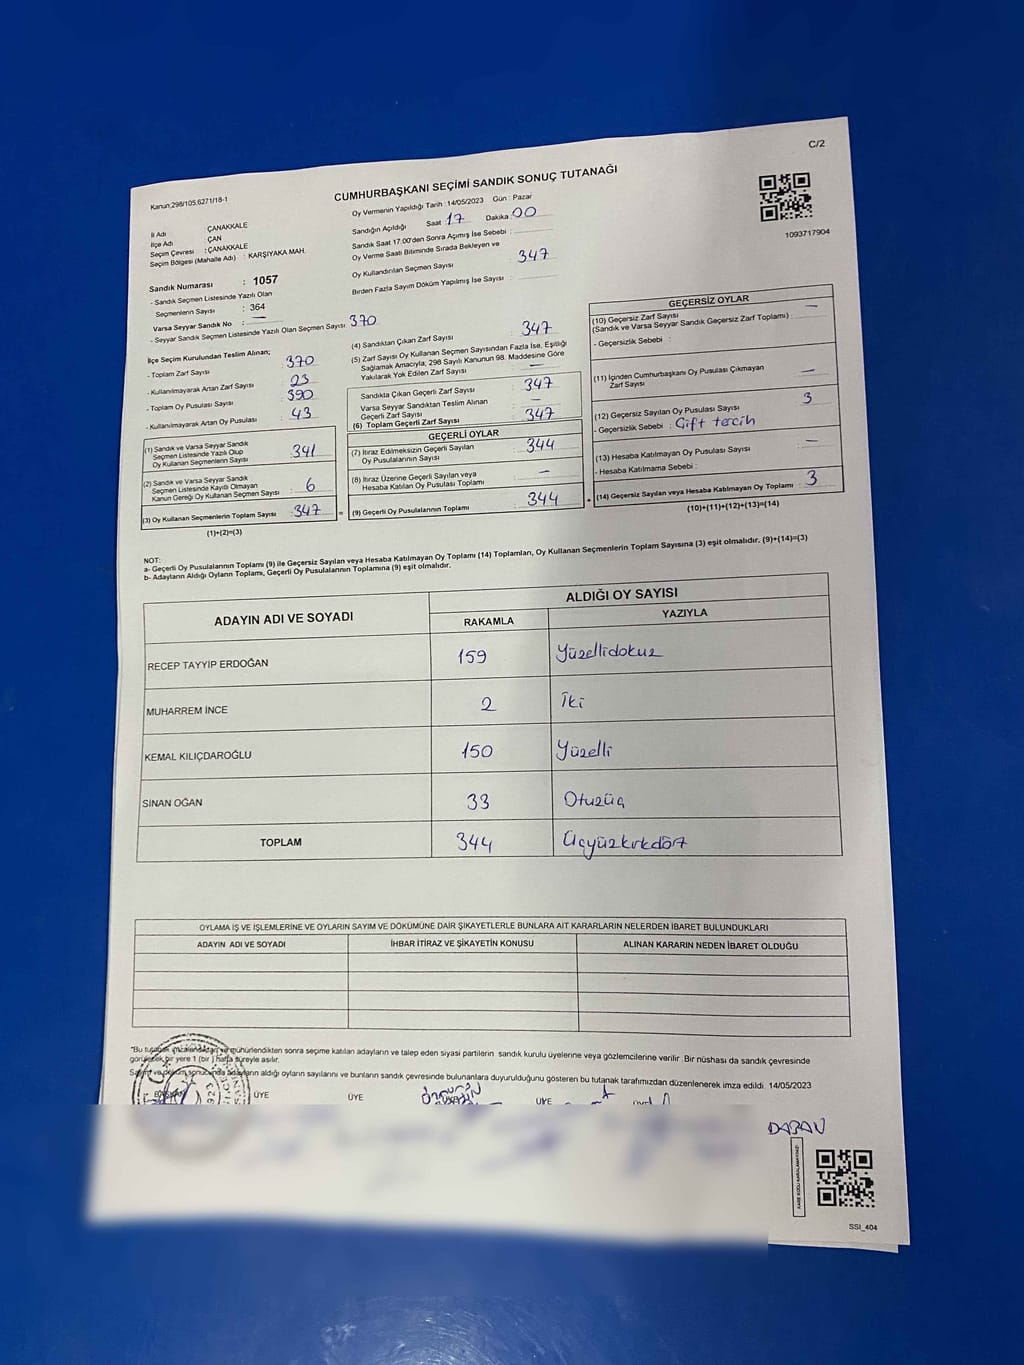 C/2
Kanun:298/105;6271/18-1
CUMHURBAŞKANI SEÇİMİ SANDIK SONUÇ TUTANAĞI
1093717904
İl Adı : ÇANAKKALE
İlçe Adı : ÇAN
Seçim Çevresi : ÇANAKKALE
Seçim Bölgesi (Mahalle Adı) : KARŞIYAKA MAH.
Sandık Numarası : 1057
- Sandık Seçmen Listesinde Yazılı Olan
Seçmenlerin Sayısı : 364
Varsa Seyyar Sandık No : —
- Seyyar Sandık Seçmen Listesinde Yazılı Olan Seçmen Sayısı: 370
Oy Vermenin Yapıldığı Tarih : 14/05/2023 Gün : Pazar
Sandığın Açıldığı Saat 17 Dakika 00
Sandık Saat 17:00'den Sonra Açımış İse Sebebi :
Oy Verme Saati Bitiminde Sırada Bekleyen ve
Oy Kullandırılan Seçmen Sayısı : 347
Birden Fazla Sayım Döküm Yapılmış İse Sayısı :
İlçe Seçim Kurulundan Teslim Alınan;
- Toplam Zarf Sayısı : 370
- Kullanılmayarak Artan Zarf Sayısı : 23
- Toplam Oy Pusulası Sayısı : 390
- Kullanılmayarak Artan Oy Pusulası : 43
(1) Sandık ve Varsa Seyyar Sandık
Seçmen Listesinde Yazılı Olup
Oy Kullanan Seçmenlerin Sayısı : 341
(2) Sandık ve Varsa Seyyar Sandık
Seçmen Listesinde Kayıtlı Olmayan
Kanun Gereği Oy Kullanan Seçmen Sayısı : 6
(3) Oy Kullanan Seçmenlerin Toplam Sayısı : 347
(1)+(2)=(3)
(4) Sandıktan Çıkan Zarf Sayısı : 347
(5) Zarf Sayısı Oy Kullanan Seçmen Sayısından Fazla İse, Eşitliği
Sağlamak Amacıyla; 298 Sayılı Kanunun 98. Maddesine Göre
Yakılarak Yok Edilen Zarf Sayısı : —
Sandıkta Çıkan Geçerli Zarf Sayısı : 347
Varsa Seyyar Sandıktan Teslim Alınan
Geçerli Zarf Sayısı : —
(6) Toplam Geçerli Zarf Sayısı : 347
GEÇERLİ OYLAR
(7) İtiraz Edilmeksizin Geçerli Sayılan
Oy Pusulalarının Sayısı : 344
(8) İtiraz Üzerine Geçerli Sayılan veya
Hesaba Katılan Oy Pusulası Toplamı : —
(9) Geçerli Oy Pusulalarının Toplamı : 344
GEÇERSİZ OYLAR
(10) Geçersiz Zarf Sayısı : —
(Sandık ve Varsa Seyyar Sandık Geçersiz Zarf Toplamı) :
- Geçersizlik Sebebi :
(11) İçinden Cumhurbaşkanı Oy Pusulası Çıkmayan
Zarf Sayısı : —
(12) Geçersiz Sayılan Oy Pusulası Sayısı : 3
- Geçersizlik Sebebi : Çift tercih
(13) Hesaba Katılmayan Oy Pusulası Sayısı : —
- Hesaba Katılmama Sebebi :
(14) Geçersiz Sayılan veya Hesaba Katılmayan Oy Toplamı : 3
(10)+(11)+(12)+(13)=(14)
NOT:
a- Geçerli Oy Pusulalarının Toplamı (9) ile Geçersiz Sayılan veya Hesaba Katılmayan Oy Toplamı (14) Toplamları, Oy Kullanan Seçmenlerin Toplam Sayısına (3) eşit olmalıdır. (9)+(14)=(3)
b- Adayların Aldığı Oyların Toplamı, Geçerli Oy Pusulalarının Toplamına (9) eşit olmalıdır.
ADAYIN ADI VE SOYADI ALDIĞI OY SAYISI
RAKAMLA YAZIYLA
RECEP TAYYİP ERDOĞAN 159 Yüzellidokuz
MUHARREM İNCE 2 İki
KEMAL KILIÇDAROĞLU 150 Yüzelli
SİNAN OĞAN 33 Otuzüç
TOPLAM 344 Üçyüzkırkdört
OYLAMA İŞ VE İŞLEMLERİNE VE OYLARIN SAYIM VE DÖKÜMÜNE DAİR ŞİKAYETLERLE BUNLARA AİT KARARLARIN NELERDEN İBARET BULUNDUKLARI
ADAYIN ADI VE SOYADI İHBAR İTİRAZ VE ŞİKAYETİN KONUSU ALINAN KARARIN NEDEN İBARET OLDUĞU
*Bu tutanak imzalandıktan ve mühürlendikten sonra seçime katılan adayların ve talep eden siyasi partilerin sandık kurulu üyelerine veya gözlemcilerine verilir. Bir nüshası da sandık çevresinde
görülecek bir yere 1 (bir) hafta süreyle asılır.
Sayım ve döküm sonucunda adayların aldığı oyların sayılarını ve bunların sandık çevresinde bulunanlara duyurulduğunu gösteren bu tutanak tarafımızdan düzenlenerek imza edildi. 14/05/2023
BAŞKAN ÜYE ÜYE ÜYE
DABAN
SSI_404